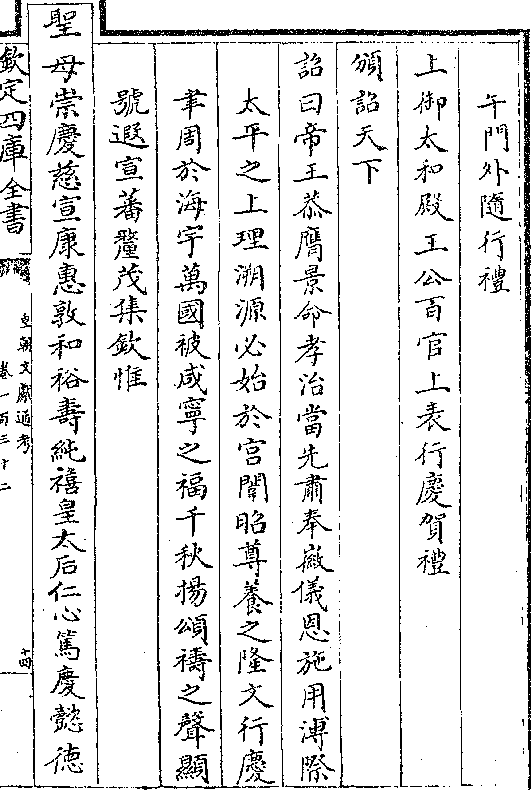 午門外隨行禮
上御太和殿王公百官上表行慶賀禮
頒詔天下
詔曰帝王恭膺景命孝治當先肅奉徽儀恩施用溥際
太平之上理溯源必始於宮闈昭尊養之隆文行慶
聿周於海宇萬國被咸寧之福千秋揚頌禱之聲顯
號遐宣蕃釐茂集欽惟
聖母崇慶慈宣康惠敦和裕壽純禧皇太后仁心篤慶懿德
欽定四庫全書
皇朝文獻通考
卷一百三十二
十四